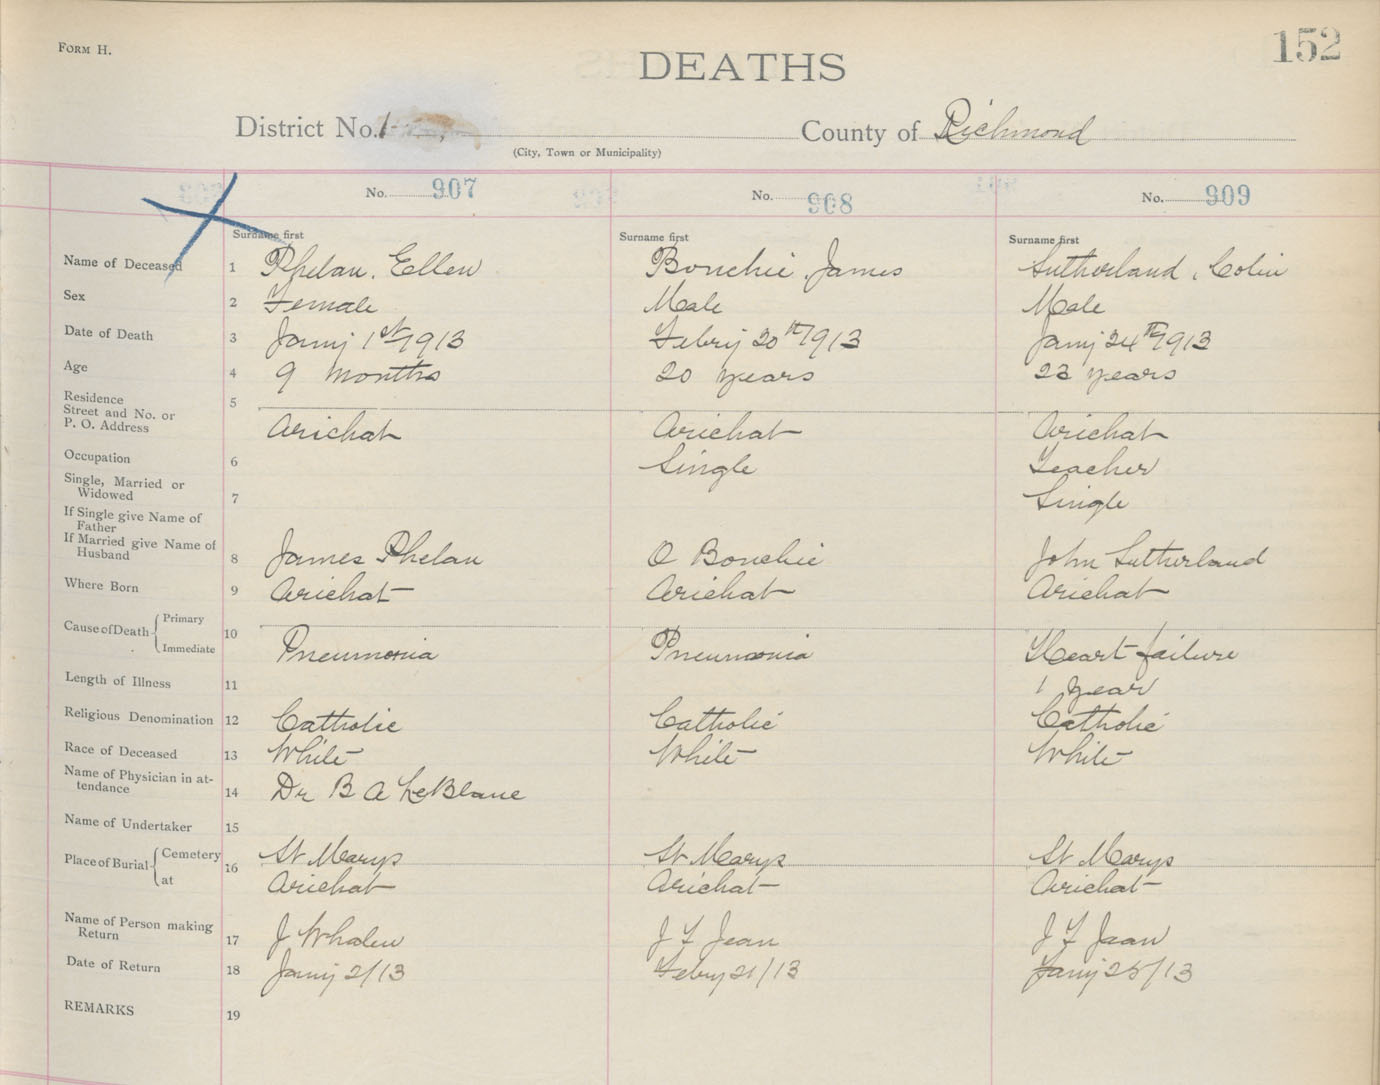 FORM H.
152
DEATHS
District No. 1
County of Richmond
(City, Town or Municipality)
No. 907
No. 908
No. 909
Surname first
Surname first
Surname first
Name of Deceased 1 Phelan, Ellen Bouchie, James Sutherland, Colin
Sex 2 Female Male Male
Date of Death 3 Jany 1st 1913 Febry 20th 1913 Jany 24th 1913
Age 4 9 months 20 years 23 years
Residence
Street and No. or
P. O. Address
5 Arichat Arichat Arichat
Occupation 6 Single Teacher
Single, Married or
Widowed
7 Single
If Single give Name of
Father
If Married give Name of
Husband
8 James Phelan O Bouchie John Sutherland
Where Born 9 Arichat Arichat Arichat
Cause of Death Primary
Immediate
10 Pneumonia Pneumonia Heart failure
Length of Illness 11 1 year
Religious Denomination 12 Catholic Catholic Catholic
Race of Deceased 13 White White White
Name of Physician in at-
tendance
14 Dr B A LeBlanc
Name of Undertaker 15
Place of Burial Cemetery
at
16 St Marys St Marys St Marys
Arichat Arichat Arichat
Name of Person making
Return
17 J Whalen J F Jean J F Jean
Date of Return 18 Jany 2/13 Febry 21/13 Jany 25/13
REMARKS 19